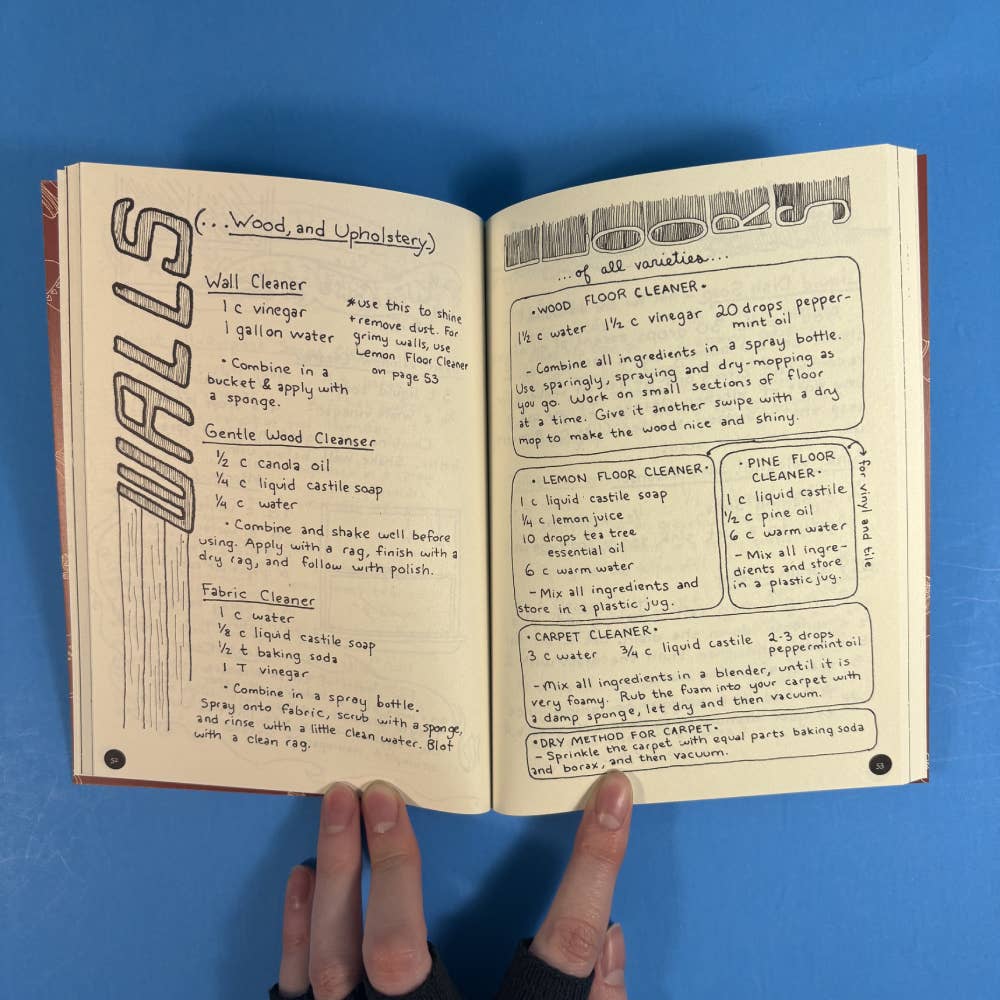 WALLS
(...Wood, and Upholstery.)
Wall Cleaner
1 c vinegar
1 gallon water
• Combine in a
bucket & apply with
a sponge.
*use this to shine
+ remove dust. For
grimy walls, use
Lemon Floor Cleaner
on page 53
Gentle Wood Cleanser
1/2 c canola oil
1/4 c liquid castile soap
1/4 c water
• Combine and shake well before
using. Apply with a rag, finish with a
dry rag, and follow with polish.
Fabric Cleaner
1 c water
1/8 c liquid castile soap
1/2 t baking soda
1 T vinegar
• Combine in a spray bottle.
Spray onto fabric, scrub with a sponge,
and rinse with a little clean water. Blot
with a clean rag.
52
FLOORS
...of all varieties...
• WOOD FLOOR CLEANER •
1 1/2 c water 1 1/2 c vinegar 20 drops pepper-
mint oil
- Combine all ingredients in a spray bottle.
Use sparingly, spraying and dry-mopping as
you go. Work on small sections of floor
at a time. Give it another swipe with a dry
mop to make the wood nice and shiny.
• LEMON FLOOR CLEANER •
1 c liquid castile soap
1/4 c lemon juice
10 drops tea tree
essential oil
6 c warm water
- Mix all ingredients and
store in a plastic jug.
• PINE FLOOR
CLEANER •
1 c liquid castile
1/2 c pine oil
6 c warm water
- Mix all ingre-
dients and store
in a plastic jug.
for vinyl and tile
• CARPET CLEANER •
3 c water 3/4 c liquid castile 2-3 drops
peppermint oil
- Mix all ingredients in a blender, until it is
very foamy. Rub the foam into your carpet with
a damp sponge, let dry and then vacuum.
• DRY METHOD FOR CARPET •
- Sprinkle the carpet with equal parts baking soda
and borax, and then vacuum.
53